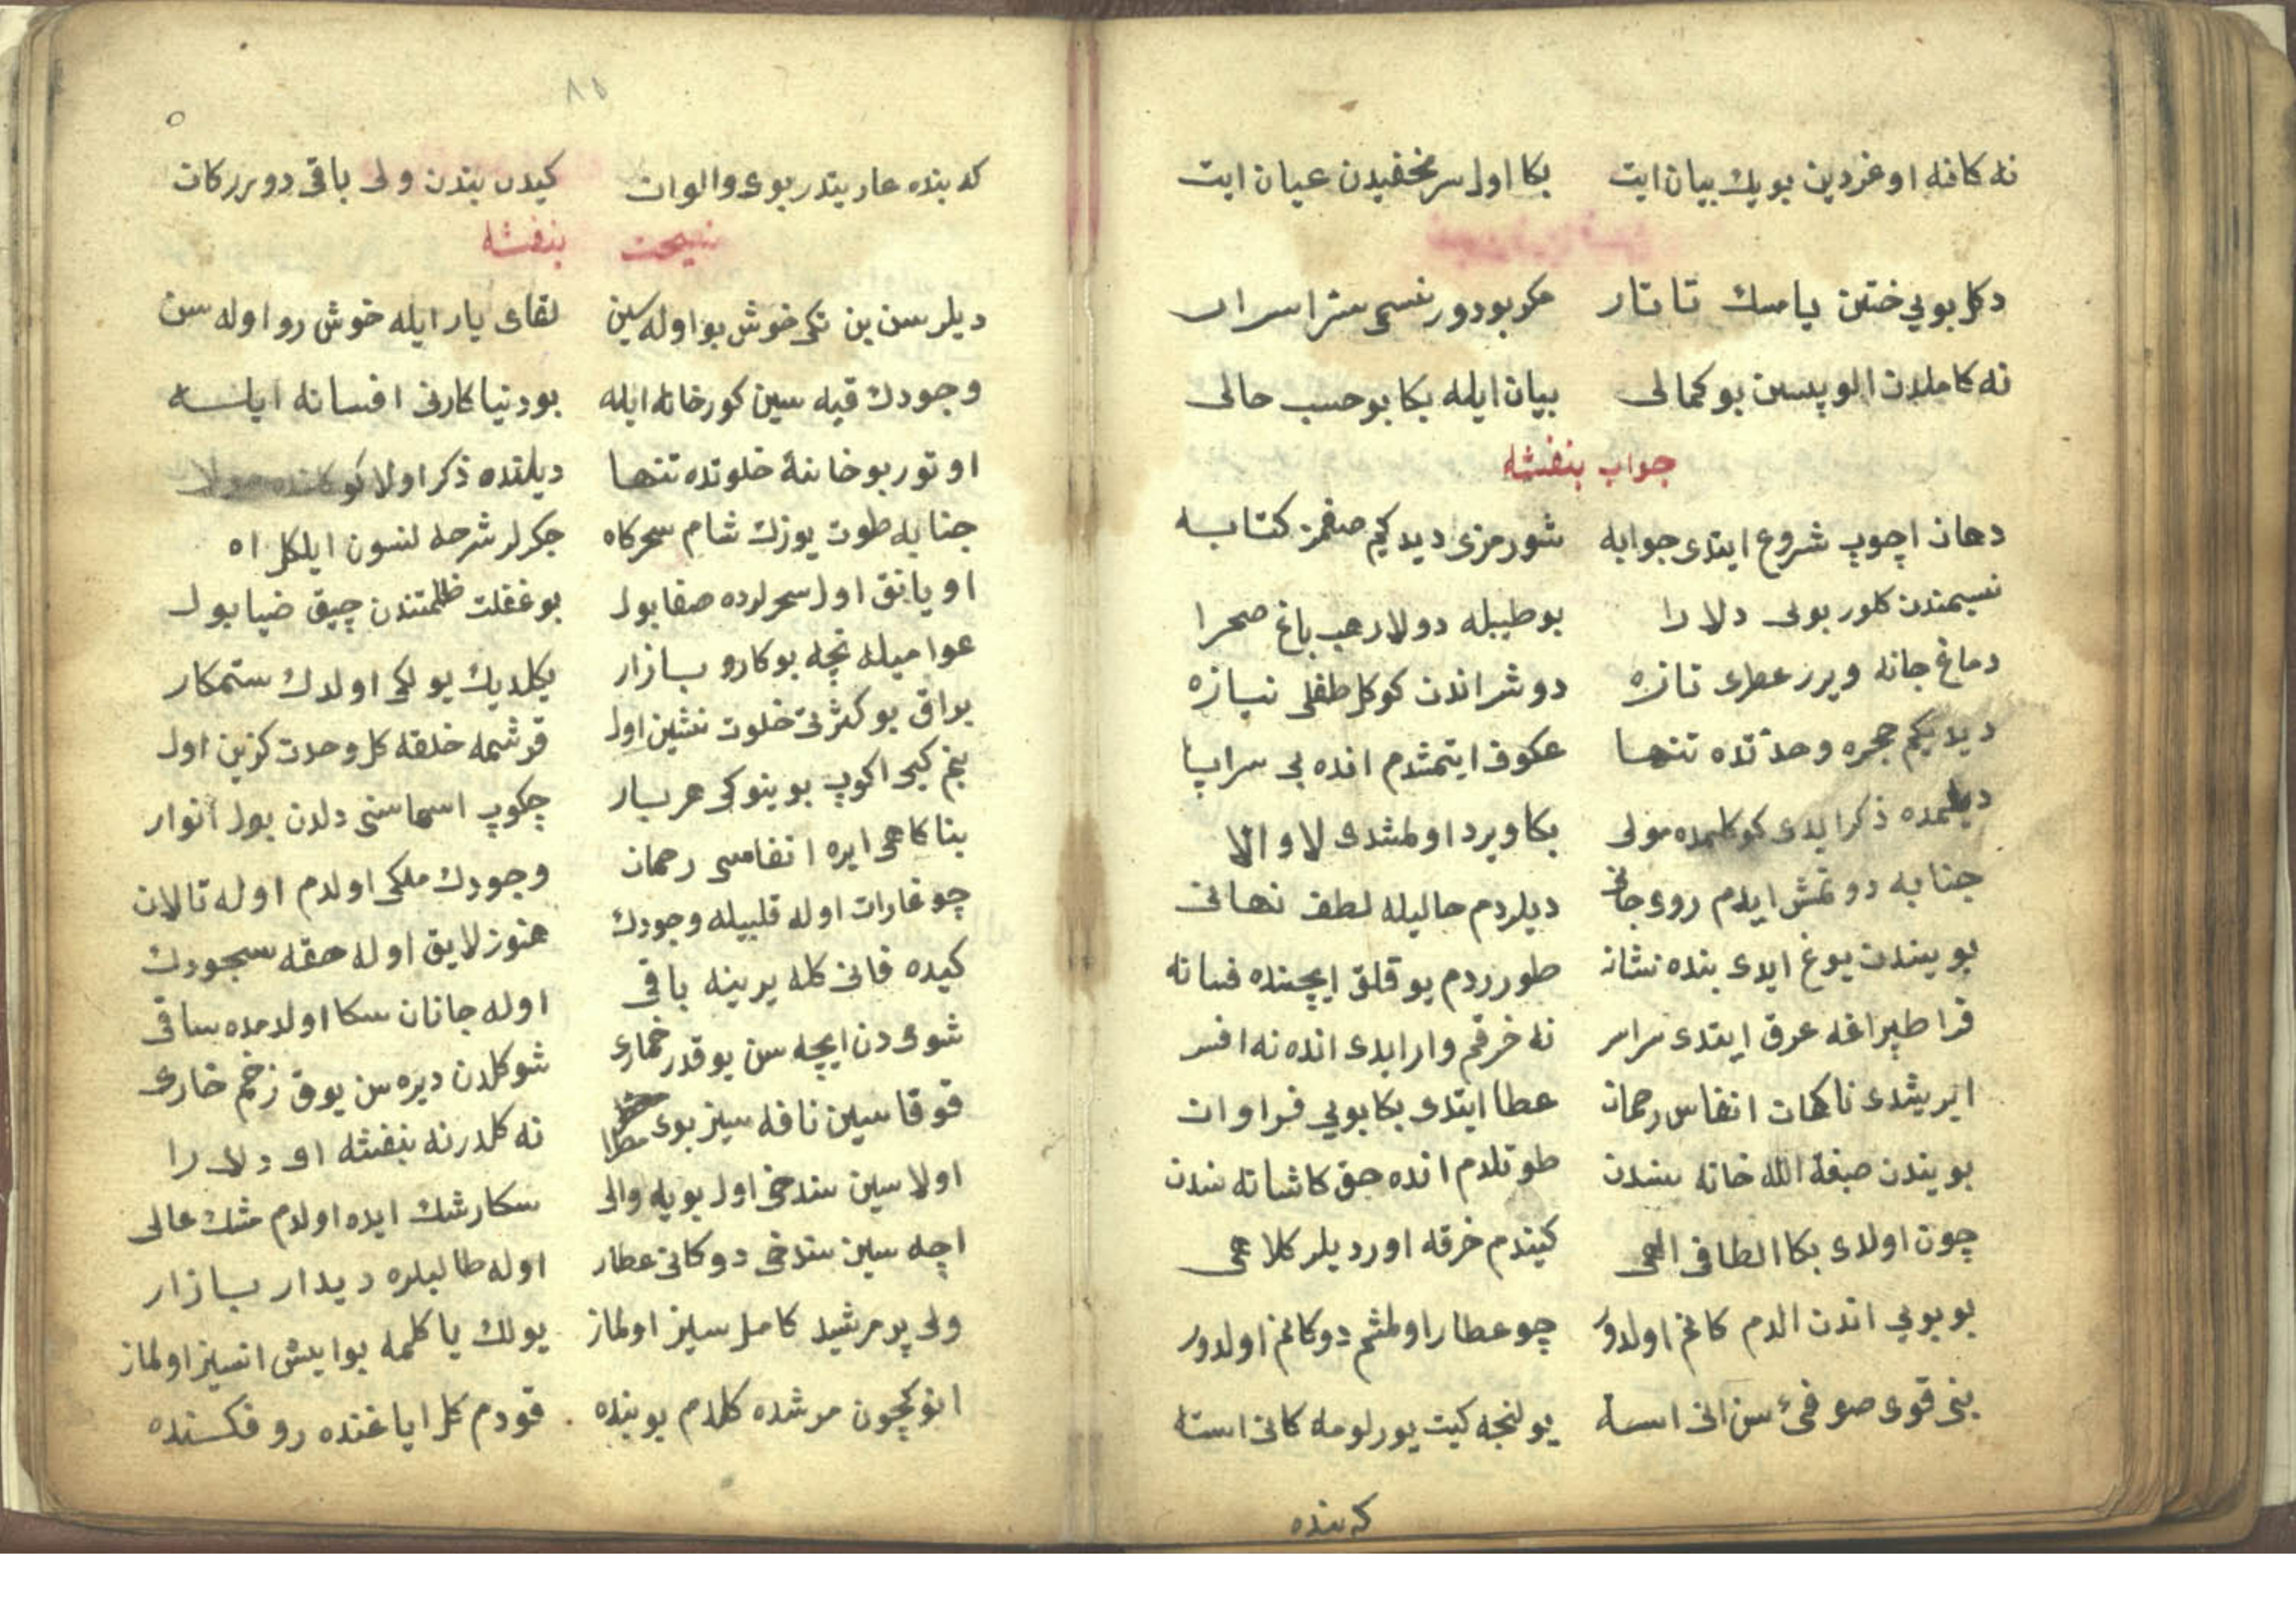 نه كانه اوغردين بويك بيان ايت بكا اول سر مخفيدن عيان ايت
دكل بويي ختن يا مسك تاتار مكر بودور نسمى ستر اسرار
نه كاملدن الوپسن بو كمالى بيان ايله بكا بو حسب حالى
جواب بنفشه
دهان اچوپ شروع ايتدى جوابه شو رمزى ديديكم صغمز كتابه
نسيمندن كلور بوى دلارا بو طيبله دولار هب باغ صحرا
دماغ جانه ويرر عطرى تازه دوشر اندن كوكل طفلى نيازه
ديديكم حجره وحدتده تنها عكوف ايتمشدم انده بى سراپا
ديلمده ذكر ايدى كوكلمده مولى بكا ويرد اولمشدى لا و الا
جنابه دوتمش ايدم روى جانى ديلردم حاليله لطف نهانى
بويندن يوغ ايدى بنده نشانه طورردم يوقلق ايچنده فسانه
قرا طپراغه عرق ايتدى سراسر نه خرقم وار ايدى انده نه افسر
ايريشدى ناكهان انفاس رحمان عطا ايتدى بكا بويى فراوان
بويندن صبغة الله خانه سندن طوتلدم انده حق كاشانه سندن
چون اولدى بكا الطاف الهى كيندم خرقه اورديلر كلاهى
بو بويى اندن الدم كانم اولدور چو عطار اولمشم دوكانم اولدور
بنى قوى صوفئ سن انى استه يولنجه كيت يورلومه كانى استه
كه بنده
كه بنده عاريتدر بوى والوان كيدر بندن ولى باقى دورر كان
نسيحت بنفشه
ديلرسن بن تكى خوش بو اوله سن لقاى يار ايله خوش رو اوله سن
وجودك قيه سين كورخانه ايله بو دنيا كارنى افسانه ايله
اوتور بو خانۀ خلوتده تنها ديلنده ذكر اولا كوكلنده مولا
جنابه طوت يوزك شام سحركاه جكرلر شرحه لنسون ايلكل اه
اويانق اول سحرلرده صفا بول بو غفلت ظلمتندن چيق ضيا بول
عواميله نچه بو كارو بازار يكلديك يولكى اولدك ستمكار
براق بو كثرتى خلوت نشين اول قرشمه خلقه كل وحدت كزين اول
بنم كبى اكوپ بوينوكى هر بار چكوپ اسماسنى دلدن بول انوار
بناكاهى ايره انفاسى رحمان وجودك ملكى اولدم اوله تالان
چو غارات اوله قلبيله وجودك هنوز لايق اوله حقه سجودك
كيده فانى كله يرينه باقى اوله جانان سكا اولدمده ساقى
شوى دن ايچه سن يوقدر خمارى شو كلدن ديره سن يوق زخم خارى
قوقاسين نافه سيز بوى مطرا نه كلدر نه بنفشه او دلارا
اولاسين سندخى اول بويه والى سكا رشك ايده اولدم مشك عالى
اچه سين سندخى دوكانى عطار اوله طالبلره ديدار بازار
ولى پر مرشيد كامل سيز اولماز يولك ياكلمه بو ايش انسيز اولماز
انوكچون مرشده كلدم بوينده قودم كل اياغنده رو فكنده